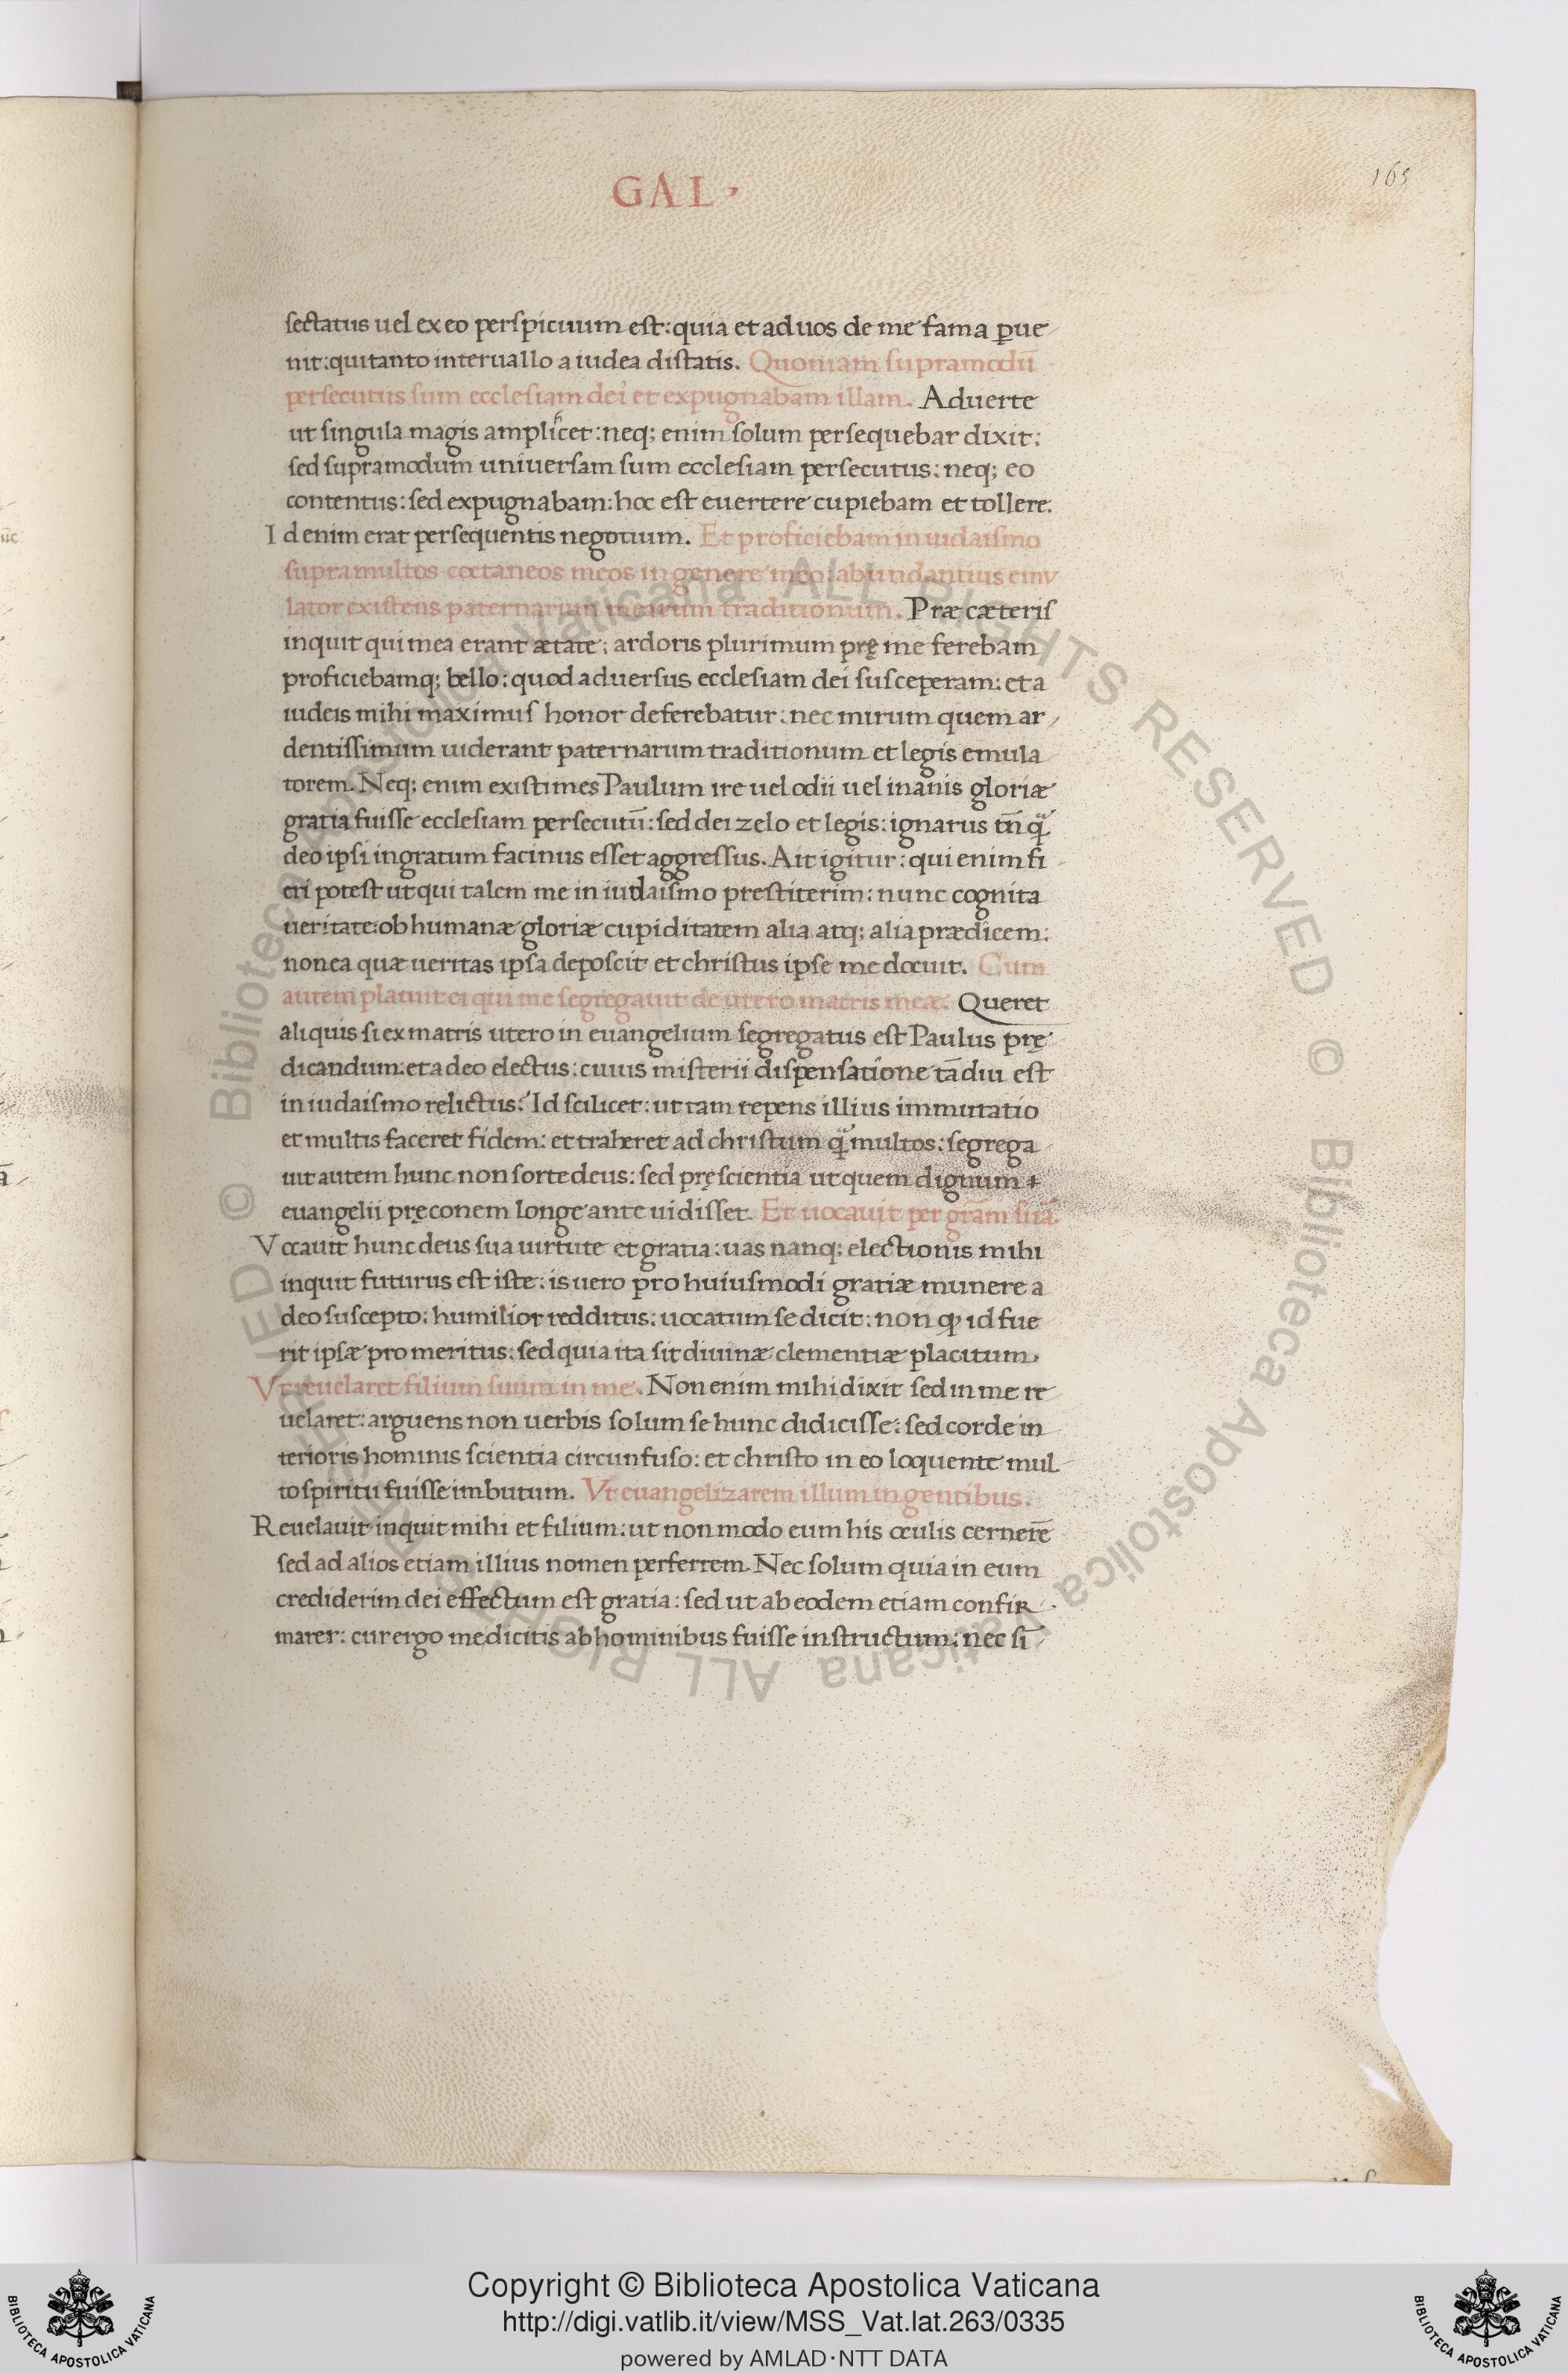 GAL.
165
sectatus uel ex eo perspicuum est: quia et ad uos de me fama ꝑue
nit: qui tanto interuallo a iudea distatis. Quoniam supra modū
persecutus sum ecclesiam dei et expugnabam illam. Aduerte
ut singula magis amplicet: neq; enim solum persequebar dixit:
sed supra modum uniuersam sum ecclesiam persecutus: neq; eo
contentus: sed expugnabam: hoc est euertere cupiebam et tollere.
Id enim erat persequentis negotium. Et proficiebam in iudaismo
supra multos coetaneos meos in genere meo: abundantius emu
lator existens paternarum mearum traditionum. Præ cæteris
inquit qui mea erant ætate: ardoris plurimum prę me ferebam
proficiebamq; bello: quod aduersus ecclesiam dei susceperam: et a
iudeis mihi maximus honor deferebatur: nec mirum quem ar
dentissimum uiderant paternarum traditionum et legis emula
torem. Neq; enim existimes Paulum ire uel odii uel inanis gloriæ
gratia fuisse ecclesiam persecutū: sed dei zelo et legis: ignarus tn̄ ꝙ
deo ipsi ingratum facinus esset aggressus. Ait igitur: qui enim fi
eri potest ut qui talem me in iudaismo prestiterim: nunc cognita
ueritate: ob humanæ gloriæ cupiditatem alia atq; alia prædicem:
non ea quæ ueritas ipsa deposcit et christus ipse me docuit. Cum
autem placuit ei qui me segregauit de utero matris meæ. Queret
aliquis si ex matris utero in euangelium segregatus est Paulus prę
dicandum: et a deo electus: cuius misterii dispensatione tādiu est
in iudaismo relictus: Id scilicet: ut tam repens illius immutatio
et multis faceret fidem: et traheret ad christum ꝙ multos: segrega
uit autem hunc non sorte deus: sed pręscientia ut quem dignum
euangelii pręconem longe ante uidisset. Et uocauit per grām suā.
Vocauit hunc deus sua uirtute et gratia: uas nanq; electionis mihi
inquit futurus est iste: is uero pro huiusmodi gratiæ munere a
deo suscepto: humilior redditus: uocatum se dicit: non ꝙ id fue
rit ipsæ promeritus: sed quia ita sit diuinæ clementiæ placitum.
Vt reuelaret filium suum in me. Non enim mihi dixit sed in me re
uelaret: arguens non uerbis solum se hunc didicisse: sed corde in
terioris hominis scientia circunfuso: et christo in eo loquente mul
to spiritu fuisse imbutum. Vt euangelizarem illum in gentibus.
Reuelauit inquit mihi et filium: ut non modo eum his oculis cernerē
sed ad alios etiam illius nomen perferrem. Nec solum quia in eum
crediderim dei effectum est gratia: sed ut ab eodem etiam confir
marer: cur ergo me dicitis ab hominibus fuisse instructum: nec sī
© Biblioteca Apostolica Vaticana ALL RIGHTS RESERVED
© Biblioteca Apostolica Vaticana ALL RIGHTS RESERVED
BIBLIOTECA APOSTOLICA VATICANA
Copyright © Biblioteca Apostolica Vaticana
http://digi.vatlib.it/view/MSS_Vat.lat.263/0335
powered by AMLAD·NTT DATA
BIBLIOTECA APOSTOLICA VATICANA